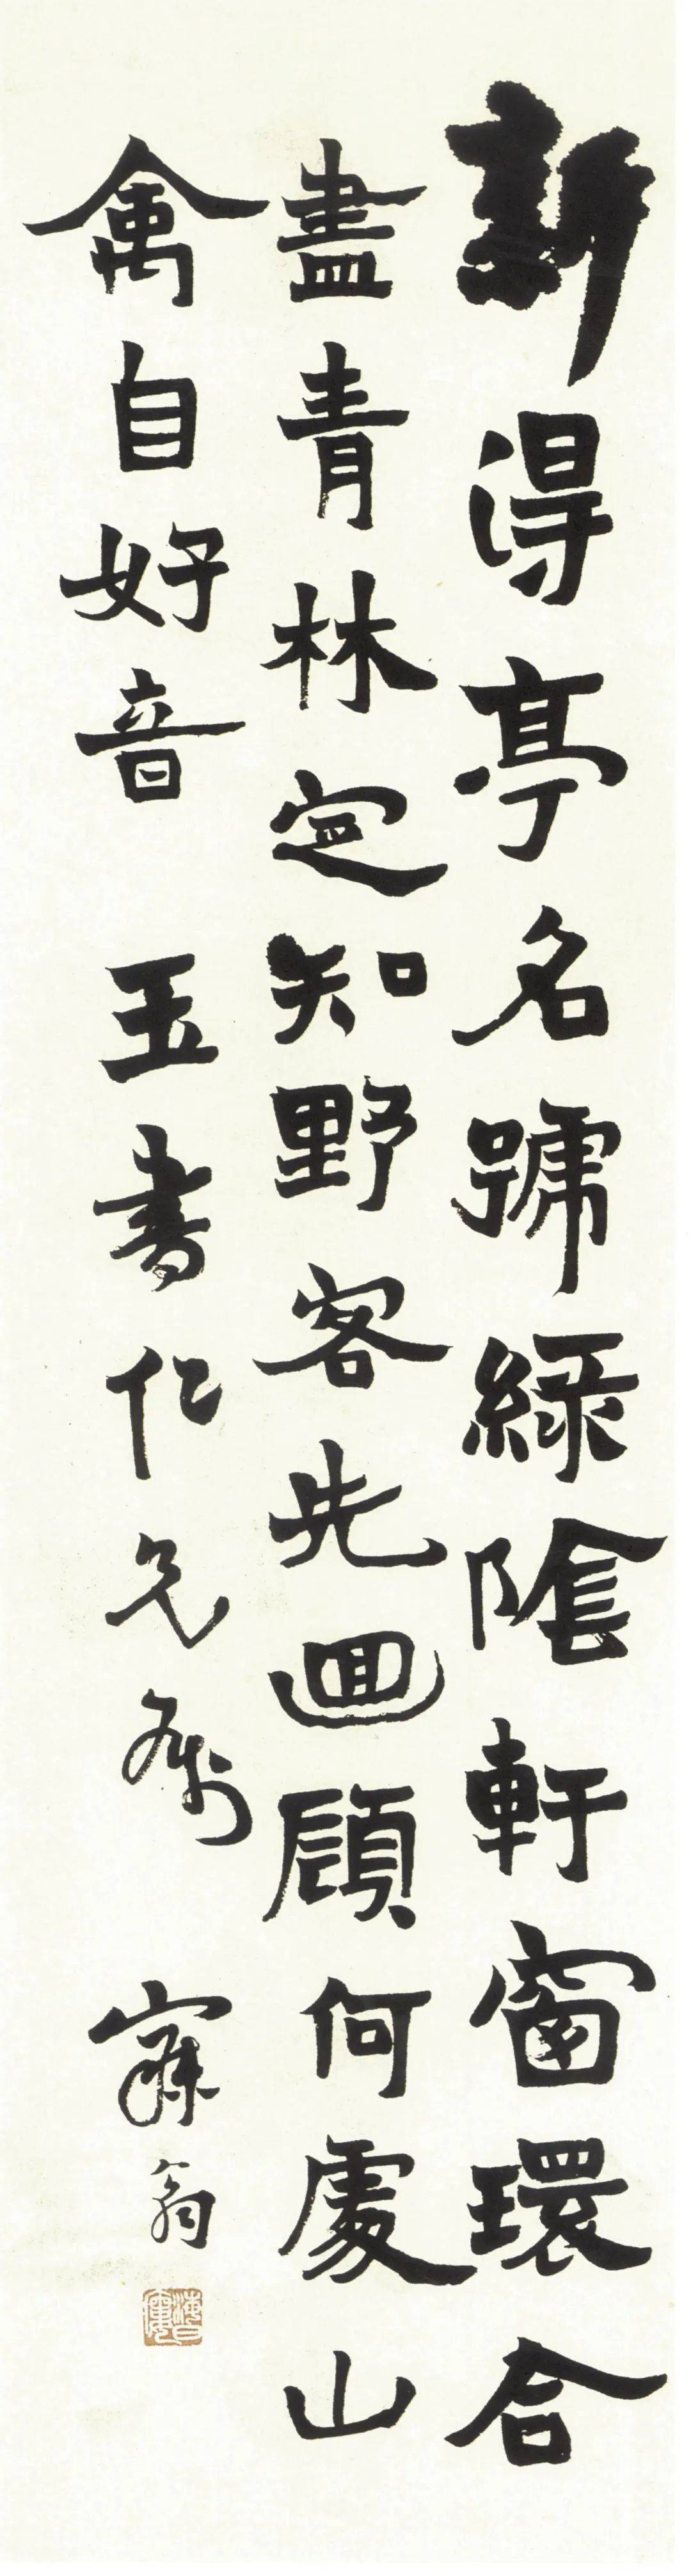 新得亭名號綠陰軒窗環合
盡青林定知野客先迴顧何處山
禽自好音 玉書仁兄屬 寐翁